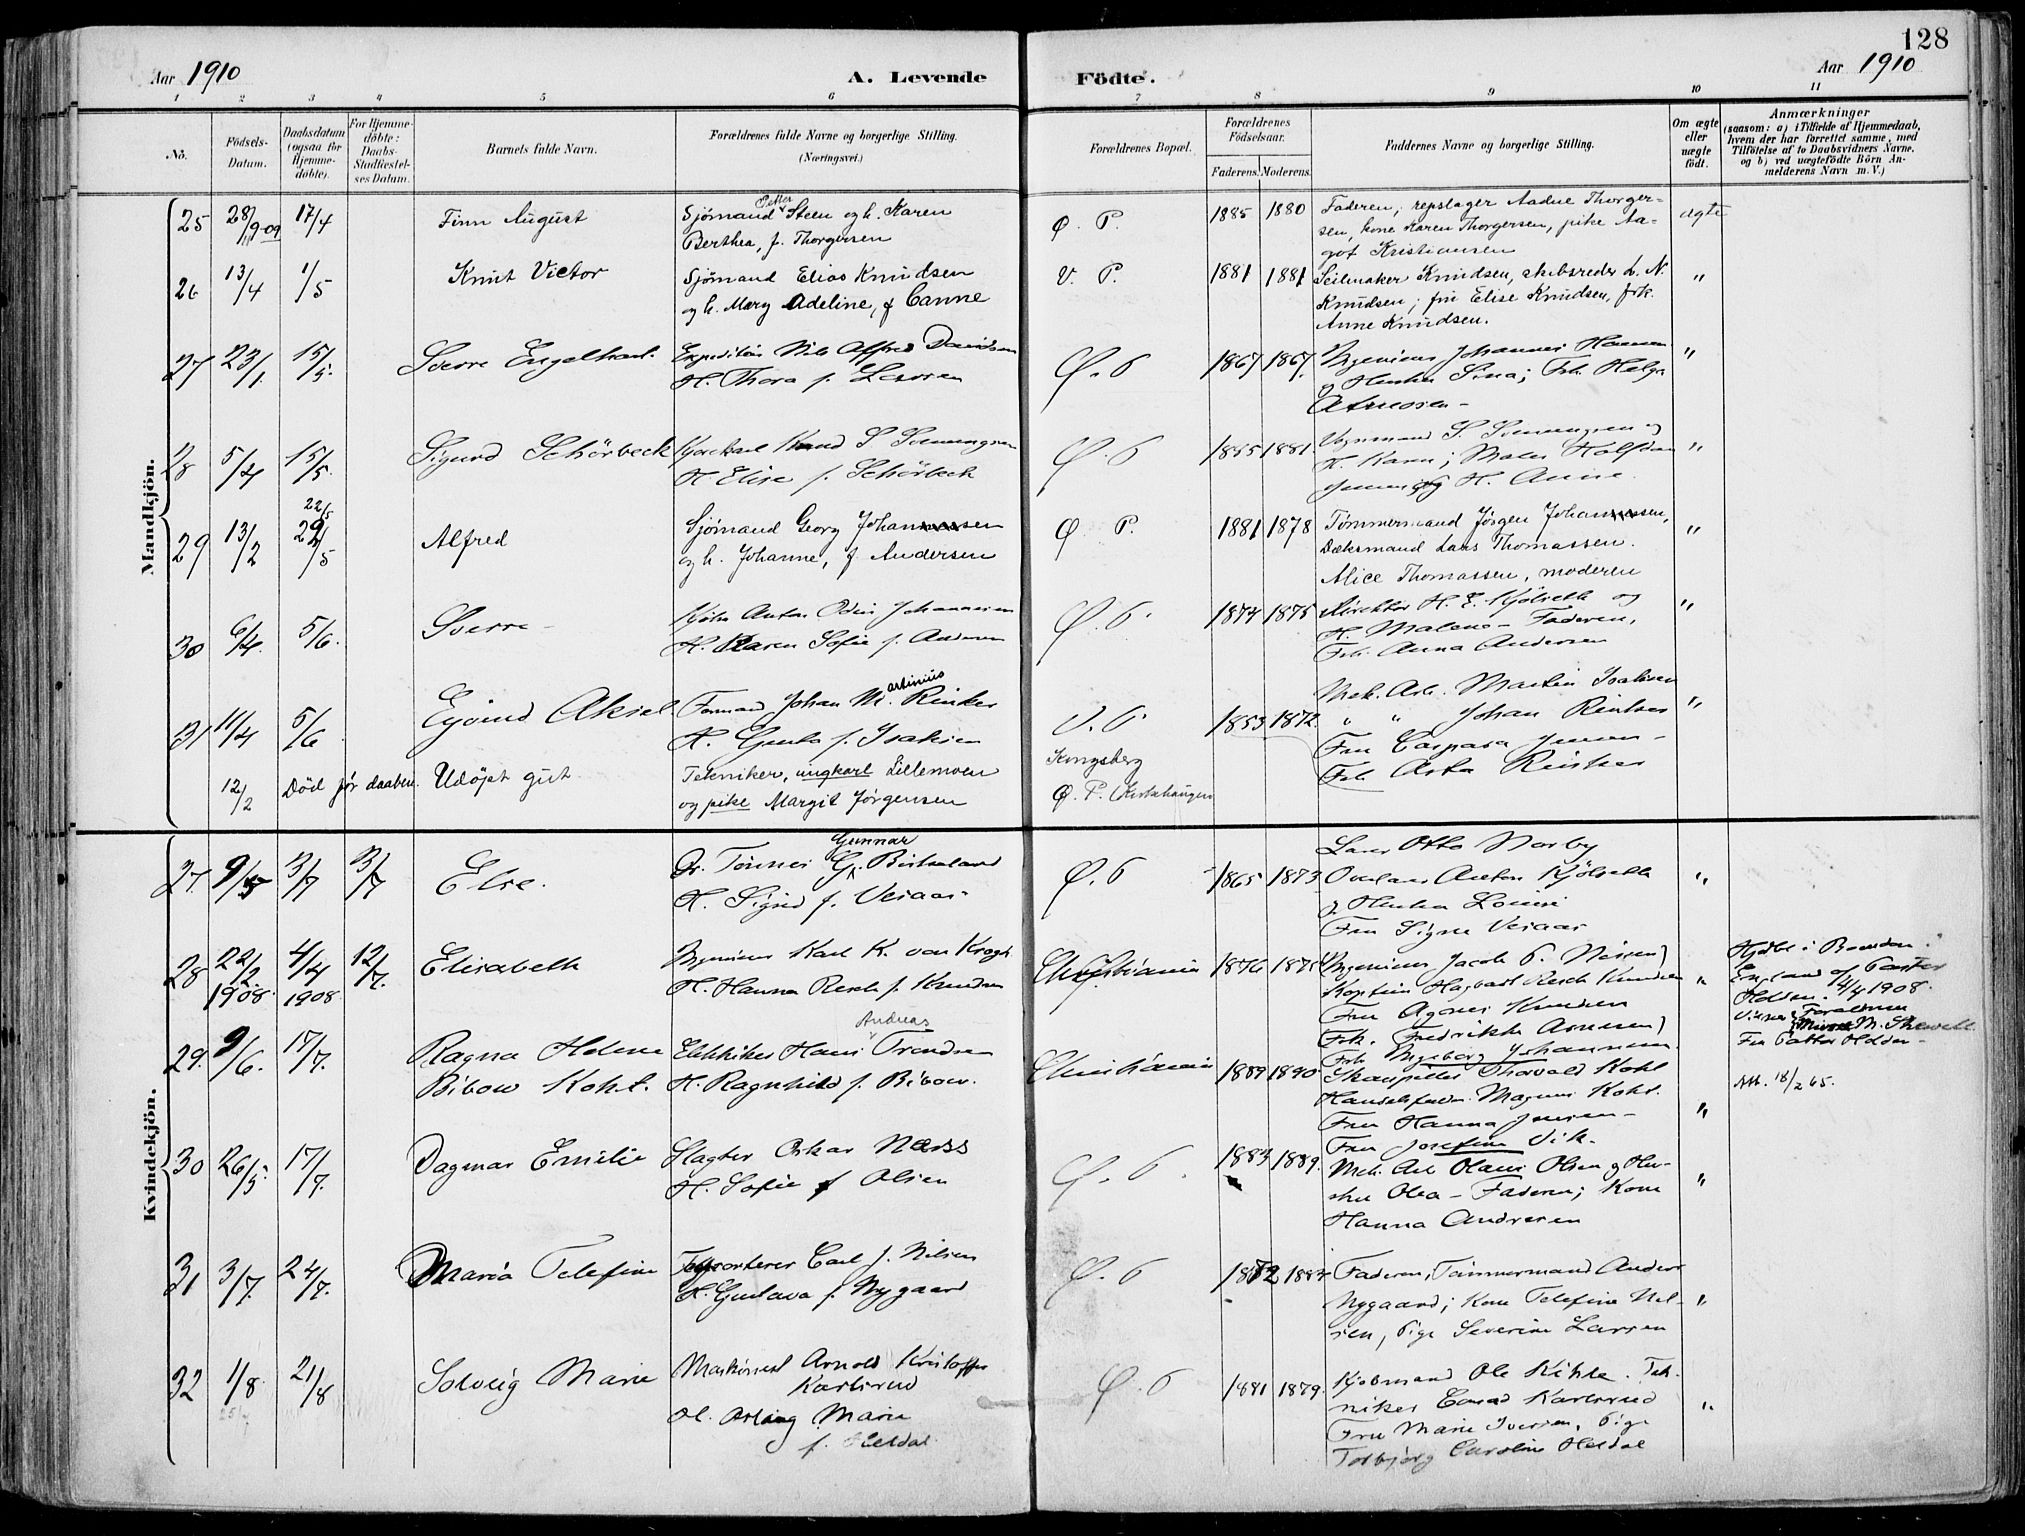 128
Aar 1910
A. Levende Födte.
Aar 1910
1 2 3 4 5 6 7 8 9 10 11
No.
Födsels-Datum.
Daabsdatum (ogsaa för Hjemmedöbte).
For Hjemmedöbte: Daabs-Stadfæstelses Datum.
Barnets fulde Navn.
Forældrenes fulde Navne og borgerlige Stilling. (Næringsvei.)
Forældrenes Bopæl.
Forældrenes Födselsaar.
Faderens. Moderens.
Faddernes Navne og borgerlige Stilling.
Om ægte eller uægte födt.
Anmærkninger
(saasom: a) i Tilfælde af Hjemmedaab, hvem der har forrettet samme, med Tilföielse af to Daabsvidners Navne, og b) ved uægtefödte Börn Anmelderens Navn m. V.)
Mandkjön.
25 28/9-09 17/4 Finn August
Sjømand Petter Steen og h. Karen
Berthea, f. Thorgersen
Ø. P. 1885 1880
Faderen; repslager Aadne Thorger-
sen, kone Karen Thorgersen, pike Aa-
got Kristiansen
ægte
26 13/4 1/5 Knut Victor
Sjømand Elias Knudsen
og h. Mary Adeline, f Canne
V. P. 1881 1881
Seilmaker Knudsen, skibsreder L. N.
Knudsen; fru Elise Knudsen, frk.
Anne Knudsen.
"
27 23/1. 15/5. Sverre Engelhart.
Expeditör Nils Alfred Davidsen
H. Thora f. Lesoren
Ø. P 1867 1867.
Ingeniör Johannes Hansen
Frk. Helga
"
28 5/4 15/5. Sigurd Schörbeck
H Elise f. Schörbeck
Ø. P 1881.
H. Karen; Maler Halfdan
Jensen og H. Anine.
"
29 13/2 22/5 Alfred
Sjømand Georg Johannessen
og h. Johanne, f. Andersen
Ø P. 1881 1878
Tømmermand Jørgen Johannessen,
Dæksmand Lars Thomassen.
Alice Thomassen, moderen
"
30 6/4. 5/6. Sverre
Anton Odin Johannesen
H. Karen Sofie f. Andersen
Ø. P. 1874 1875
Direktör H. E. Kjölseth og
H. Malene - Faderen,
Frk. Anna Andersen
"
31 11/4 5/6 Eyvind Aksel
Formand Johan Martinius Rinker
H. Gusta f. Isaksen
V. P 1853 1872.
Mek. Arb. Martin Isaksen
" " Johan Rinker
Fru Caspara Jensen -
Frk Asta Rinker
"
12/2 Död før daaben. Udøpt gut
Tekniker, ungkarl Lillemoen
og pike Margit Jørgensen
Kongsberg
Ø. P.
Kvindekjön.
27. 9/5 3/7 3/7 Else.
Dr. Tönnes Gunnar G. Birkeland
H. Signe f. Vesaas
Ø. P 1865 1873
Otto Norby
Overlærer Anton Kjölseth
og Hustru Louise
Fru Signe Vesaas
"
28 22/2. 1908. 4/4 1908 12/7. Elisabeth
Ingeniör Karl K. von Krogh
H. Hanna Resch f. Knudsen
Christiania 1876
Ingeniör Jacob P. Nissen
Kaptein Hagbart Resch Knudsen
Fru Agnes Knudsen
Frk. Fredrikke Arnesen
Frk Ingeborg Johannesen.
"
Hjdöbt i
England af Pastor
Holdsen. 4/4 1908.
Vidner: Forældrene
Fru Pastor Holdsen -
29. 9/6. 17/7. Ragna Helene
Bibow Kohl.
Elektriker Hans Andreas Trondsen
H. Ragnhild f. Bibow.
Christiania 1889 1890.
Skuespiller Thorvald Kohl
Magnus Kohl.
Fru Hanna Jensen -
Fru Josefine Vik.
"
Att. 18/2 65.
30 26/5. 17/7. Dagmar Emilie
Slagter Oskar Næss
H. Sofie f Olsen
Ø. P. 1883 1889.
Mek. Arb Olaus Olsen og Hu-
stru Olea - Faderen; Kone
Hanna Andresen
"
31 3/7. 24/7. Maria Telefine
Carl J. Nilsen
H. Gustava f. Nygaard
Ø. P 1882 1883
Faderen, Tömmermand Anders
Nygaard; Kone Telefine Nil-
sen, Pige Severine Larsen
"
32 1/8. 21/8 Solveig Marie
Maskinist Arnold Kristoffer
Karlsrud
H. Aslaug Marie
f. Heldal.
Ø. P 1881 1879.
Kjöbmand Ole Kihle. Tek-
niker Conrad Karlsrud
Fru Marie Iversen, Pige
Torbjørg Caroline Heldal
"